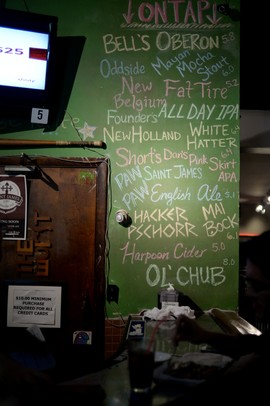 ↓ ONTAP ↓
BELL'S OBERON 5.8
Oddside Mayan Mocha Stout
New Belgium Fat Tire 5.2
Founder's ALL DAY IPA
NEW HOLLAND WHITE HATTER
Short's Daris Pink Skirt APA
PAW SAINT JAMES
PAW English Ale 5.1
HACKER PSCHORR MAI BOCK
Harpoon Cider 5.0
OL' CHUB 8.0
$25
5
$10.00 MINIMUM
PURCHASE
REQUIRED FOR ALL
CREDIT CARDS